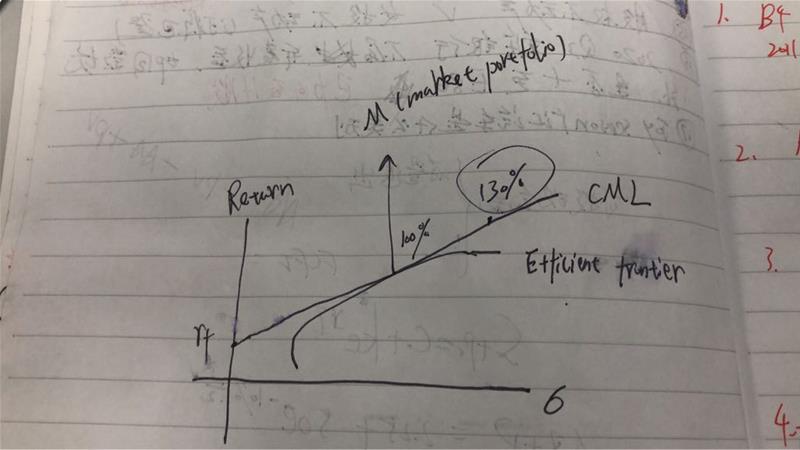 1. B4
2011
M (market portfolio)
2.
Return
130%
CML
100%
Efficient frontier
3.
rf
σ
4.